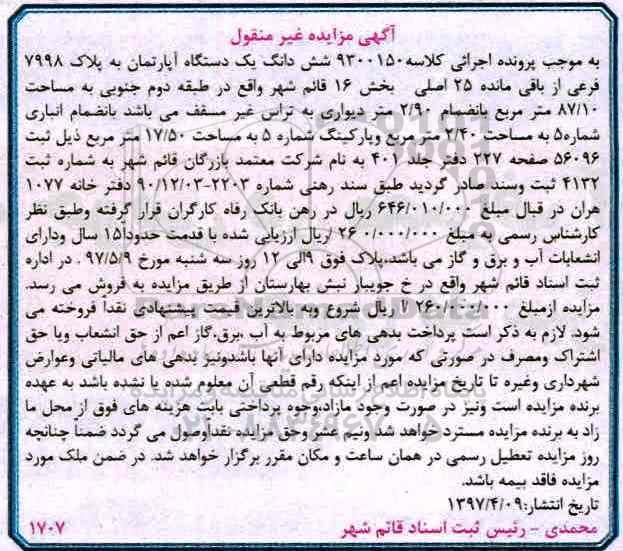 آگهی مزایده غیر منقول
به موجب پرونده اجرائی کلاسه۹۳۰۰۱۵۰ شش دانگ یک دستگاه آپارتمان به پلاک ۷۹۹۸
فرعی از باقی مانده ۲۵ اصلی بخش ۱۶ قائم شهر واقع در طبقه دوم جنوبی به مساحت
۸۷/۱۰ متر مربع بانضمام ۲/۹۰ متر دیواری به تراس غیر مسقف می باشد بانضمام انباری
شماره۵ به مساحت ۲/۴۰ متر مربع وپارکینگ شماره ۵ به مساحت ۱۷/۵۰ متر مربع ذیل ثبت
۵۶۰۹۶ صفحه ۲۲۷ دفتر جلد ۴۰۱ به نام شرکت معتمد بازرگان قائم شهر به شماره ثبت
۴۱۳۲ ثبت وسند صادر گردید طبق سند رهنی شماره ۲۲۰۳-۹۰/۱۲/۰۳ دفتر خانه ۱۰۷۷
هران در قبال مبلغ ۶۴۶/۰۱۰/۰۰۰ ریال در رهن بانک رفاه کارگران قرار گرفته وطبق نظر
کارشناس رسمی به مبلغ ۲۶۰۰/۰۰۰/۰۰۰ /ریال ارزیابی شده با قدمت حدودا۱۵ سال ودارای
انشعابات آب و برق و گاز می باشد،پلاک فوق ۹الی ۱۲ روز سه شنبه مورخ ۹۷/۵/۹ . در اداره
ثبت اسناد قائم شهر واقع در خ جویبار نبش بهارستان از طریق مزایده به فروش می رسد.
مزایده ازمبلغ ۲۶۰۰/۰۰۰/۰۰۰ ریال شروع وبه بالاترین قیمت پیشنهادی نقداً فروخته می
شود. لازم به ذکر است پرداخت بدهی های مربوط به آب ،برق،گاز اعم از حق انشعاب ویا حق
اشتراک ومصرف در صورتی که مورد مزایده دارای آنها باشدونیز بدهی های مالیاتی وعوارض
شهرداری وغیره تا تاریخ مزایده اعم از اینکه رقم قطعی آن معلوم شده یا نشده باشد به عهده
برنده مزایده است ونیز در صورت وجود مازاد،وجوه پرداختی بابت هزینه های فوق از محل ما
زاد به برنده مزایده مسترد خواهد شد ونیم عشر وحق مزایده نقداوصول می گردد ضمناً چنانچه
روز مزایده تعطیل رسمی در همان ساعت و مکان مقرر برگزار خواهد شد. در ضمن ملک مورد
مزایده فاقد بیمه باشد.
تاریخ انتشار:۱۳۹۷/۴/۰۹
محمدی - رئیس ثبت اسناد قائم شهر
۱۷۰۷